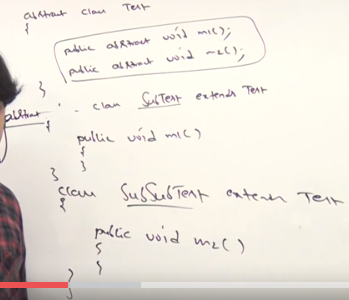 abstract class Test
{
public abstract void m1();
public abstract void m2();
}
abstract class SubTest extends Test
{
public void m1()
{
}
}
class SubSubTest extends Test
{
public void m2()
{
}
}